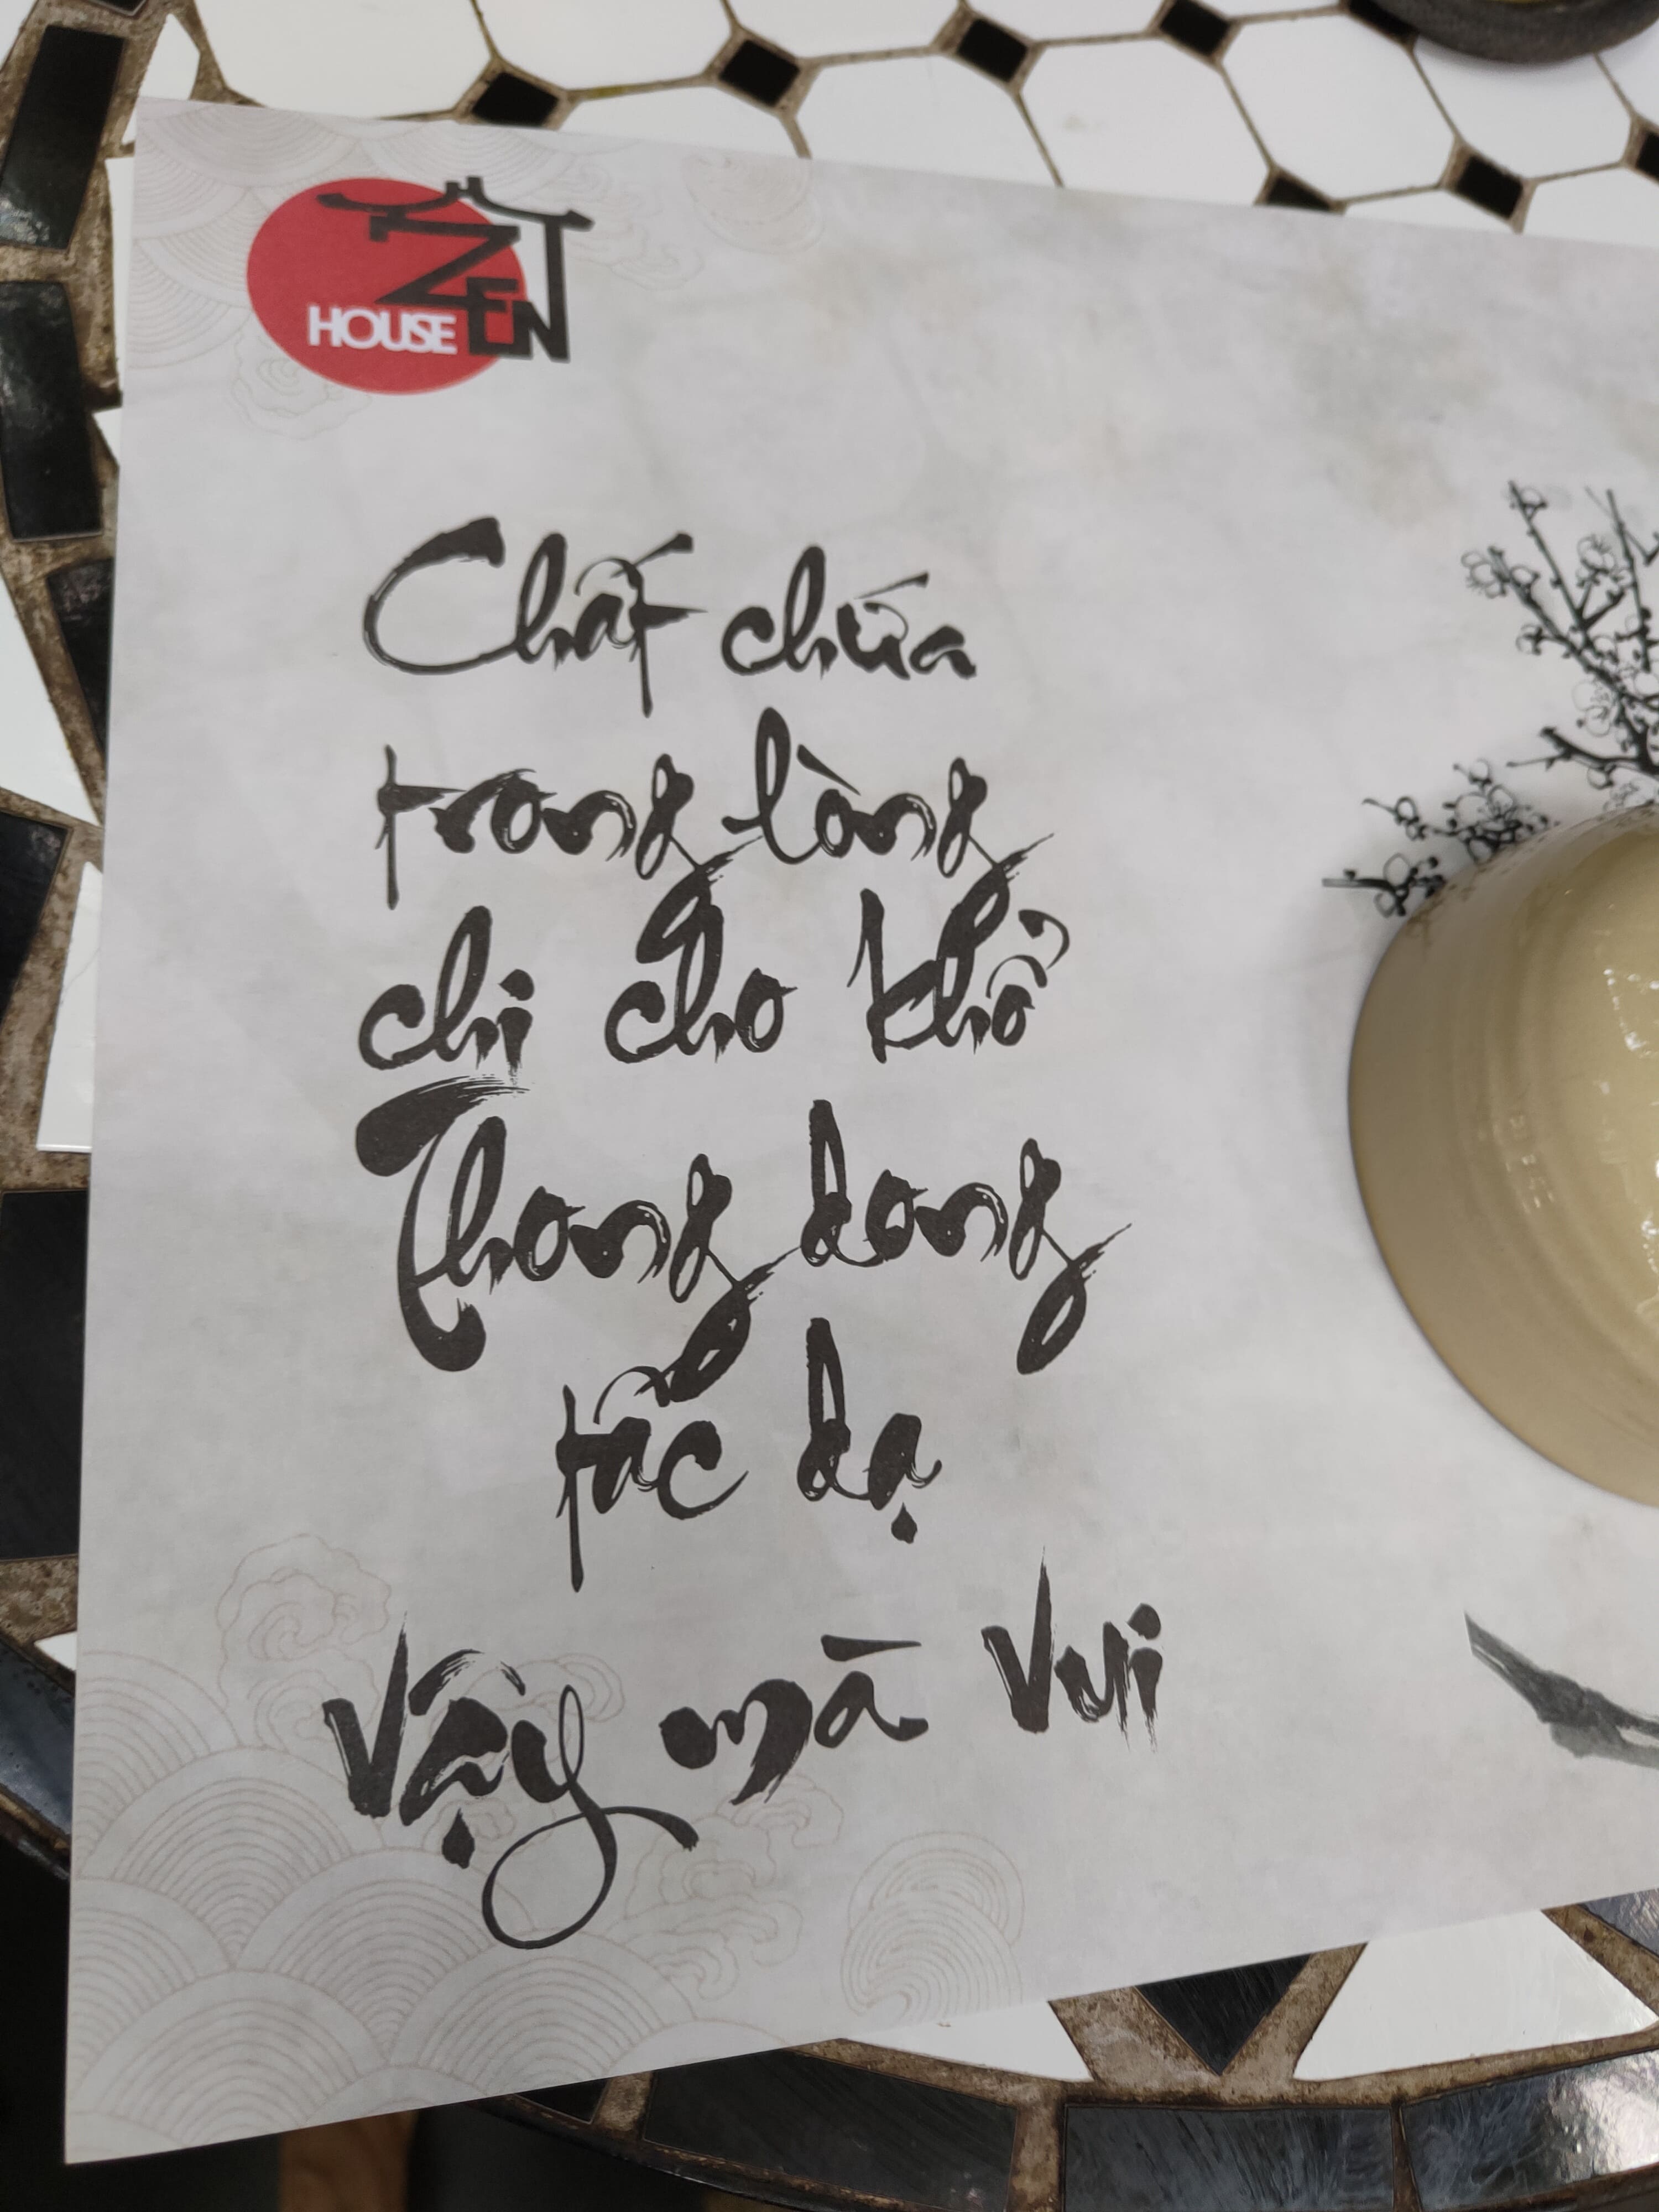 ZEN
HOUSE
Chất chứa
trong lòng
chi cho khổ
Thong dong
tấc dạ
Vậy mà vui